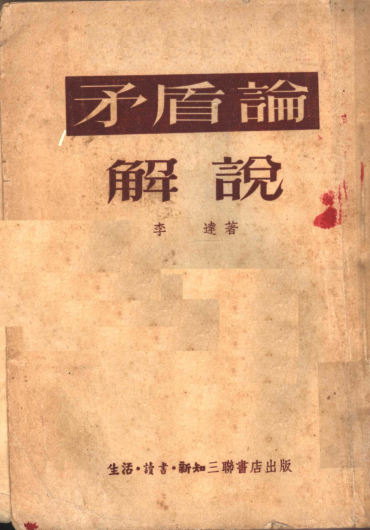 矛盾論
解說
李達著
生活·讀書·新知三聯書店出版